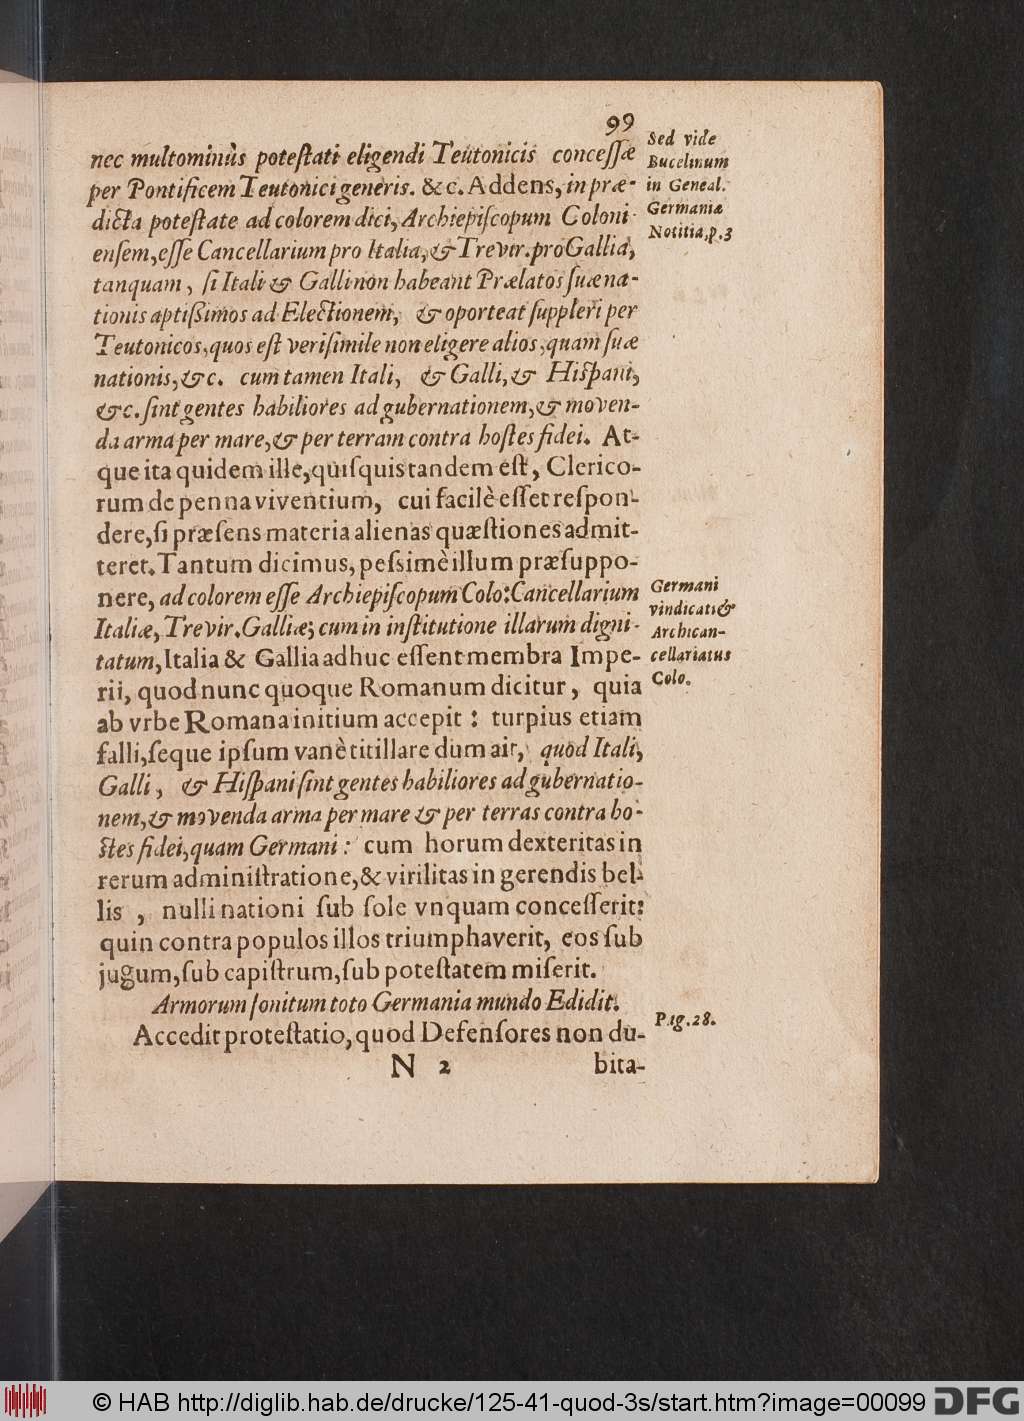 99
nec multominùs poteſtati eligendi Teutonicis conceſſæ
per Pontificem Teutonici generis. &c. Addens, in præ-
dicta poteſtate ad colorem dici, Archiepiſcopum Coloni-
enſem, eſſe Cancellarium pro Italia, & Trevir. pro Gallia,
tanquam, ſi Itali & Galli non habeant Prælatos ſuæ na-
tionis aptiſſimos ad Electionem, & oporteat ſuppleri per
Teutonicos, quos eſt veriſimile non eligere alios, quam ſuæ
nationis, &c. cum tamen Itali, & Galli, & Hiſpani,
&c. ſint gentes habiliores ad gubernationem, & moven-
da arma per mare, & per terram contra hoſtes fidei. At-
que ita quidem ille, quiſquis tandem eſt, Clerico-
rum de penna viventium, cui facilè eſſet reſpon-
dere, ſi præſens materia alienas quæſtiones admit-
teret. Tantum dicimus, peſsimè illum præſuppo-
nere, ad colorem eſſe Archiepiſcopum Colo: Cancellarium
Italiæ, Trevir. Galliæ; cum in inſtitutione illarum digni-
tatum, Italia & Gallia adhuc eſſent membra Impe-
rii, quod nunc quoque Romanum dicitur, quia
ab vrbe Romana initium accepit: turpius etiam
falli, ſeque ipſum vanè titillare dum ait, quod Itali,
Galli, & Hiſpani ſint gentes habiliores ad gubernatio-
nem, & movenda arma per mare & per terras contra ho-
ſtes fidei, quam Germani: cum horum dexteritas in
rerum adminiſtratione, & virilitas in gerendis bel-
lis, nulli nationi ſub ſole vnquam conceſſerit:
quin contra populos illos triumphaverit, eos ſub
jugum, ſub capiſtrum, ſub poteſtatem miſerit.
Armorum ſonitum toto Germania mundo Edidit.
Accedit proteſtatio, quod Defenſores non du-
N 2 bita-
Sed vide
Bucelinum
in Geneal.
Germaniæ
Notitia, p. 3
Germani
vindicati &
Archican-
cellariatus
Colo.
Pag. 28.
© HAB http://diglib.hab.de/drucke/125-41-quod-3s/start.htm?image=00099
DFG